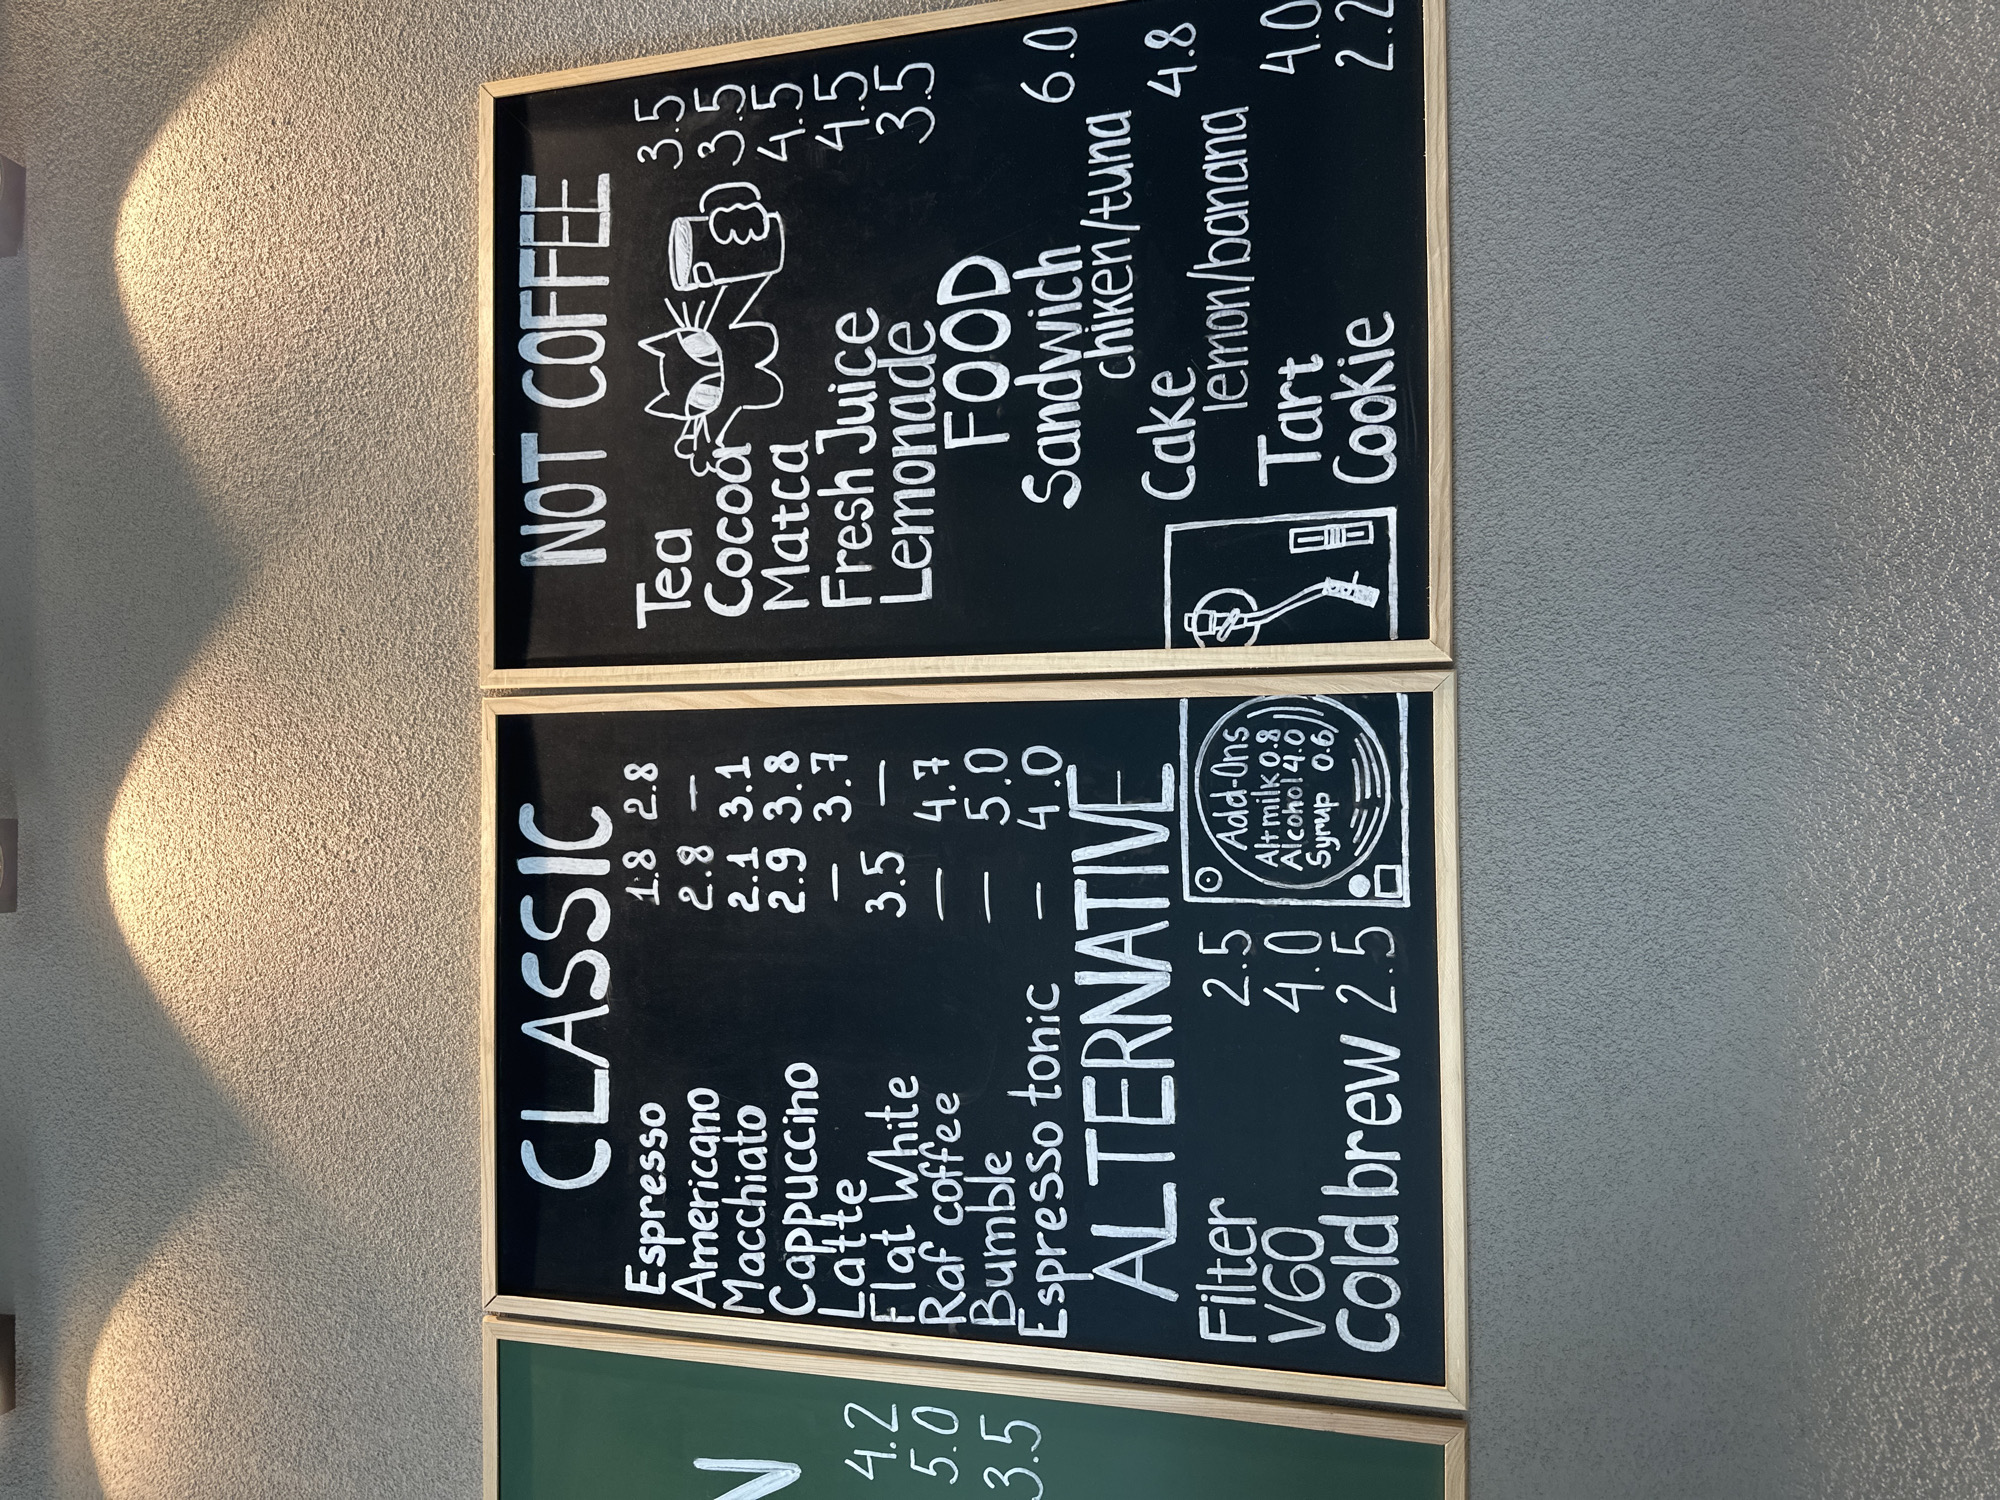 N
4.2
5.0
3.5
CLASSIC
Espresso 1.8 2.8
Americano 2.8 —
Macchiato 2.1 3.1
Cappuccino 2.9 3.8
Latte — 3.7
Flat White 3.5 —
Raf coffee — 4.7
Bumble — 5.0
Espresso tonic — 4.0
ALTERNATIVE
Filter 2.5
V60 4.0
Cold brew 2.5
Add-Ons
Alt milk 0.8
Alcohol 4.0
Syrup 0.6
NOT COFFEE
Tea 3.5
Cocoa 3.5
Matca 4.5
Fresh Juice 4.5
Lemonade 3.5
FOOD
Sandwich 6.0
chiken/tuna
Cake 4.8
lemon/banana
Tart 4.0
Cookie 2.2